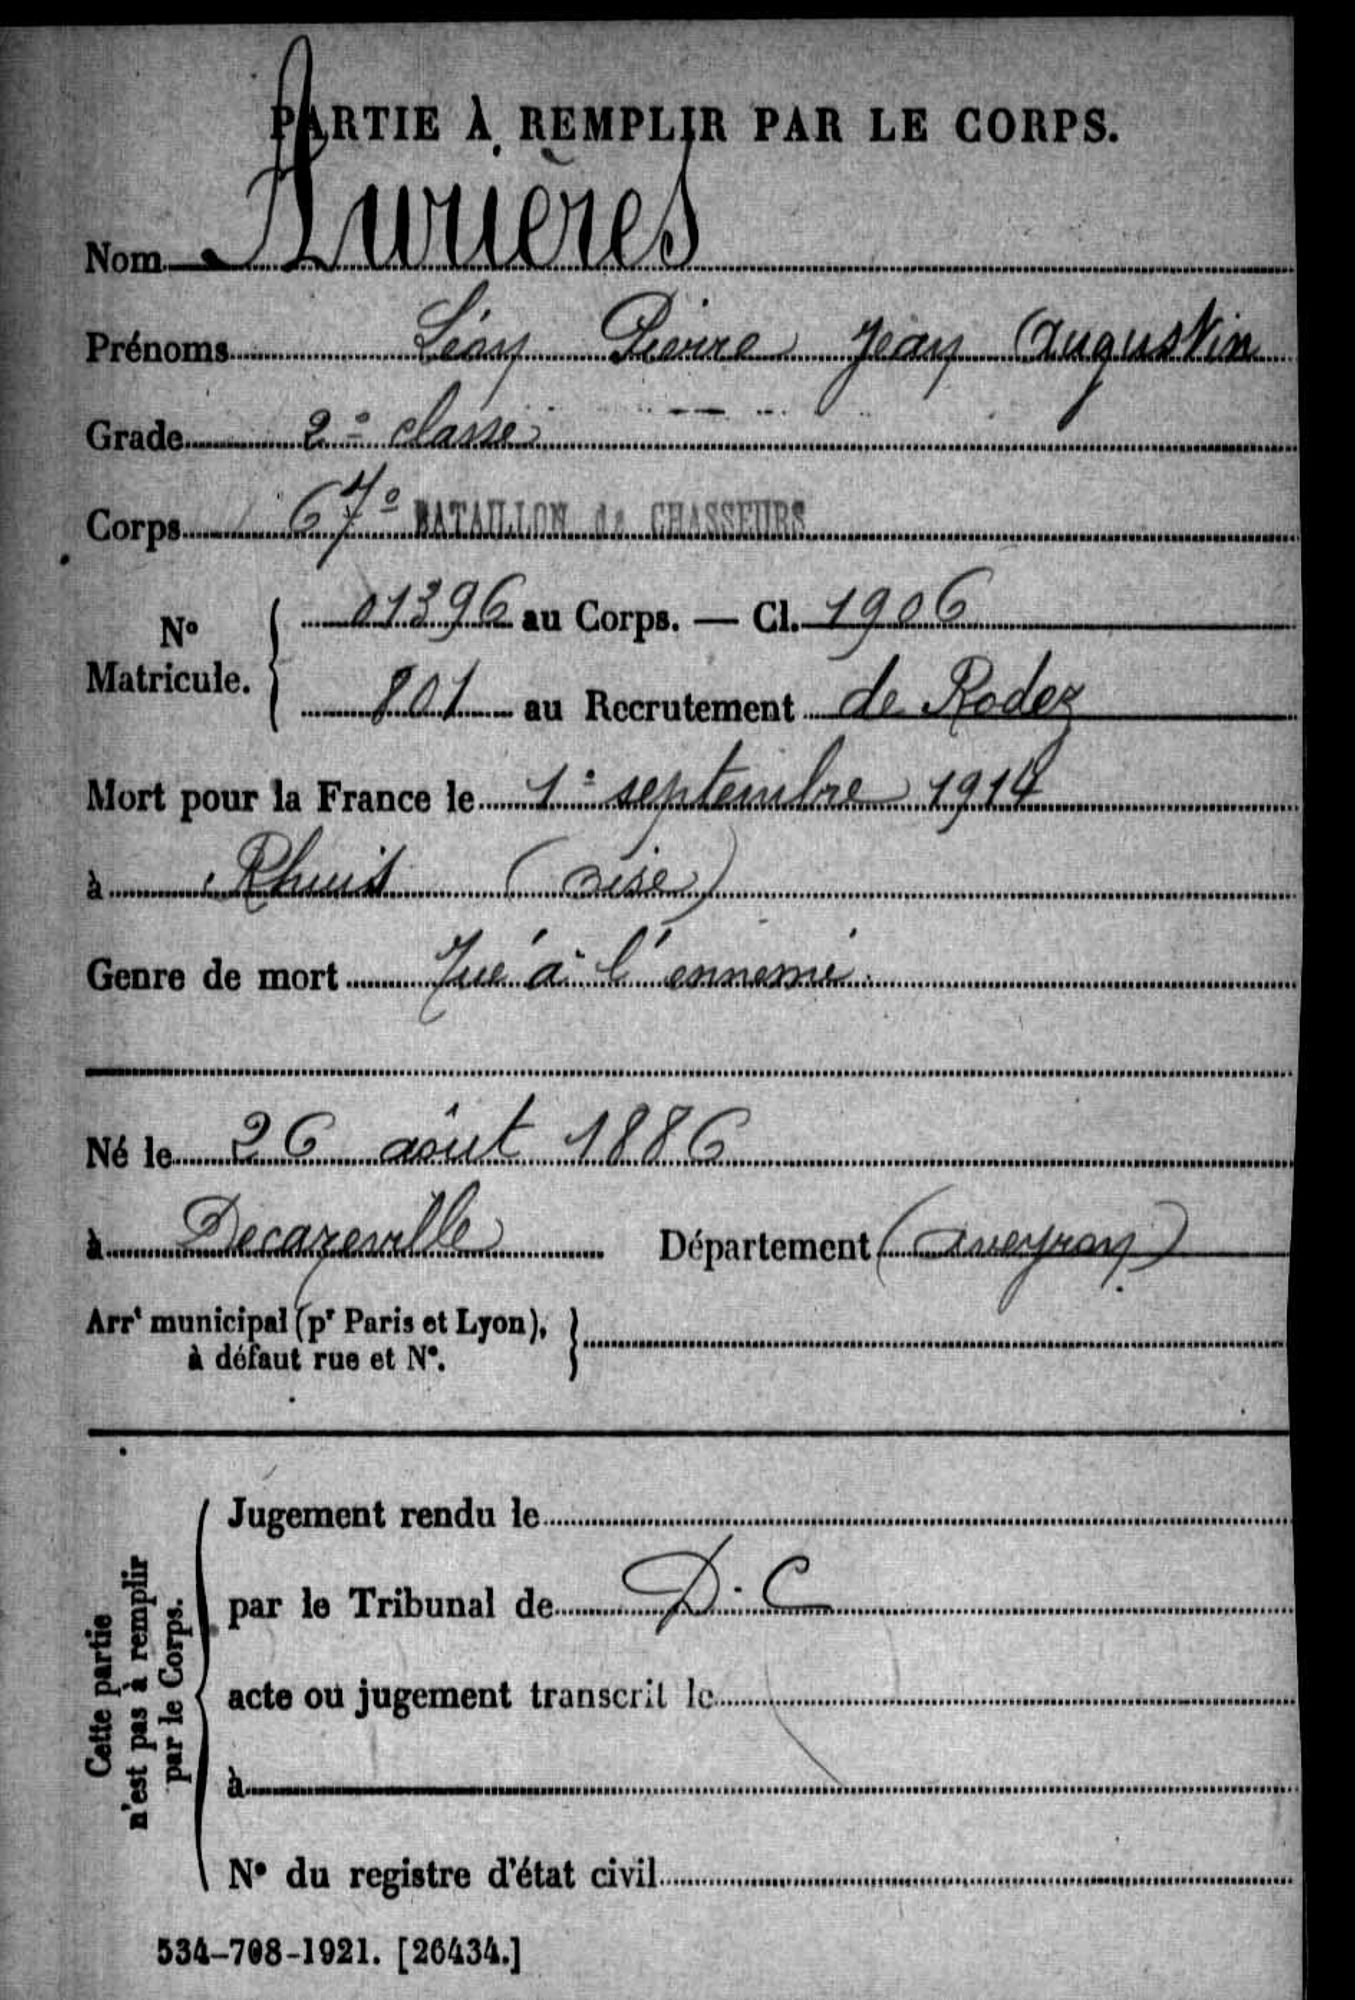 PARTIE À REMPLIR PAR LE CORPS.
Nom Aurières
Prénoms Léon Pierre Jean Augustin
Grade 2e classe
Corps 67e BATAILLON de CHASSEURS
N° Matricule. 01396 au Corps. — Cl. 1906
801 au Recrutement de Rodez
Mort pour la France le 1er septembre 1914
à Rhuis (oise)
Genre de mort Tué à l'ennemi
Né le 26 août 1886
à Decazeville Département (aveyron)
Arrt municipal (pr Paris et Lyon),
à défaut rue et N°.
Cette partie
n'est pas à remplir
par le Corps.
Jugement rendu le
par le Tribunal de D. C
acte ou jugement transcrit le
à
N° du registre d'état civil
534-708-1921. [26434.]